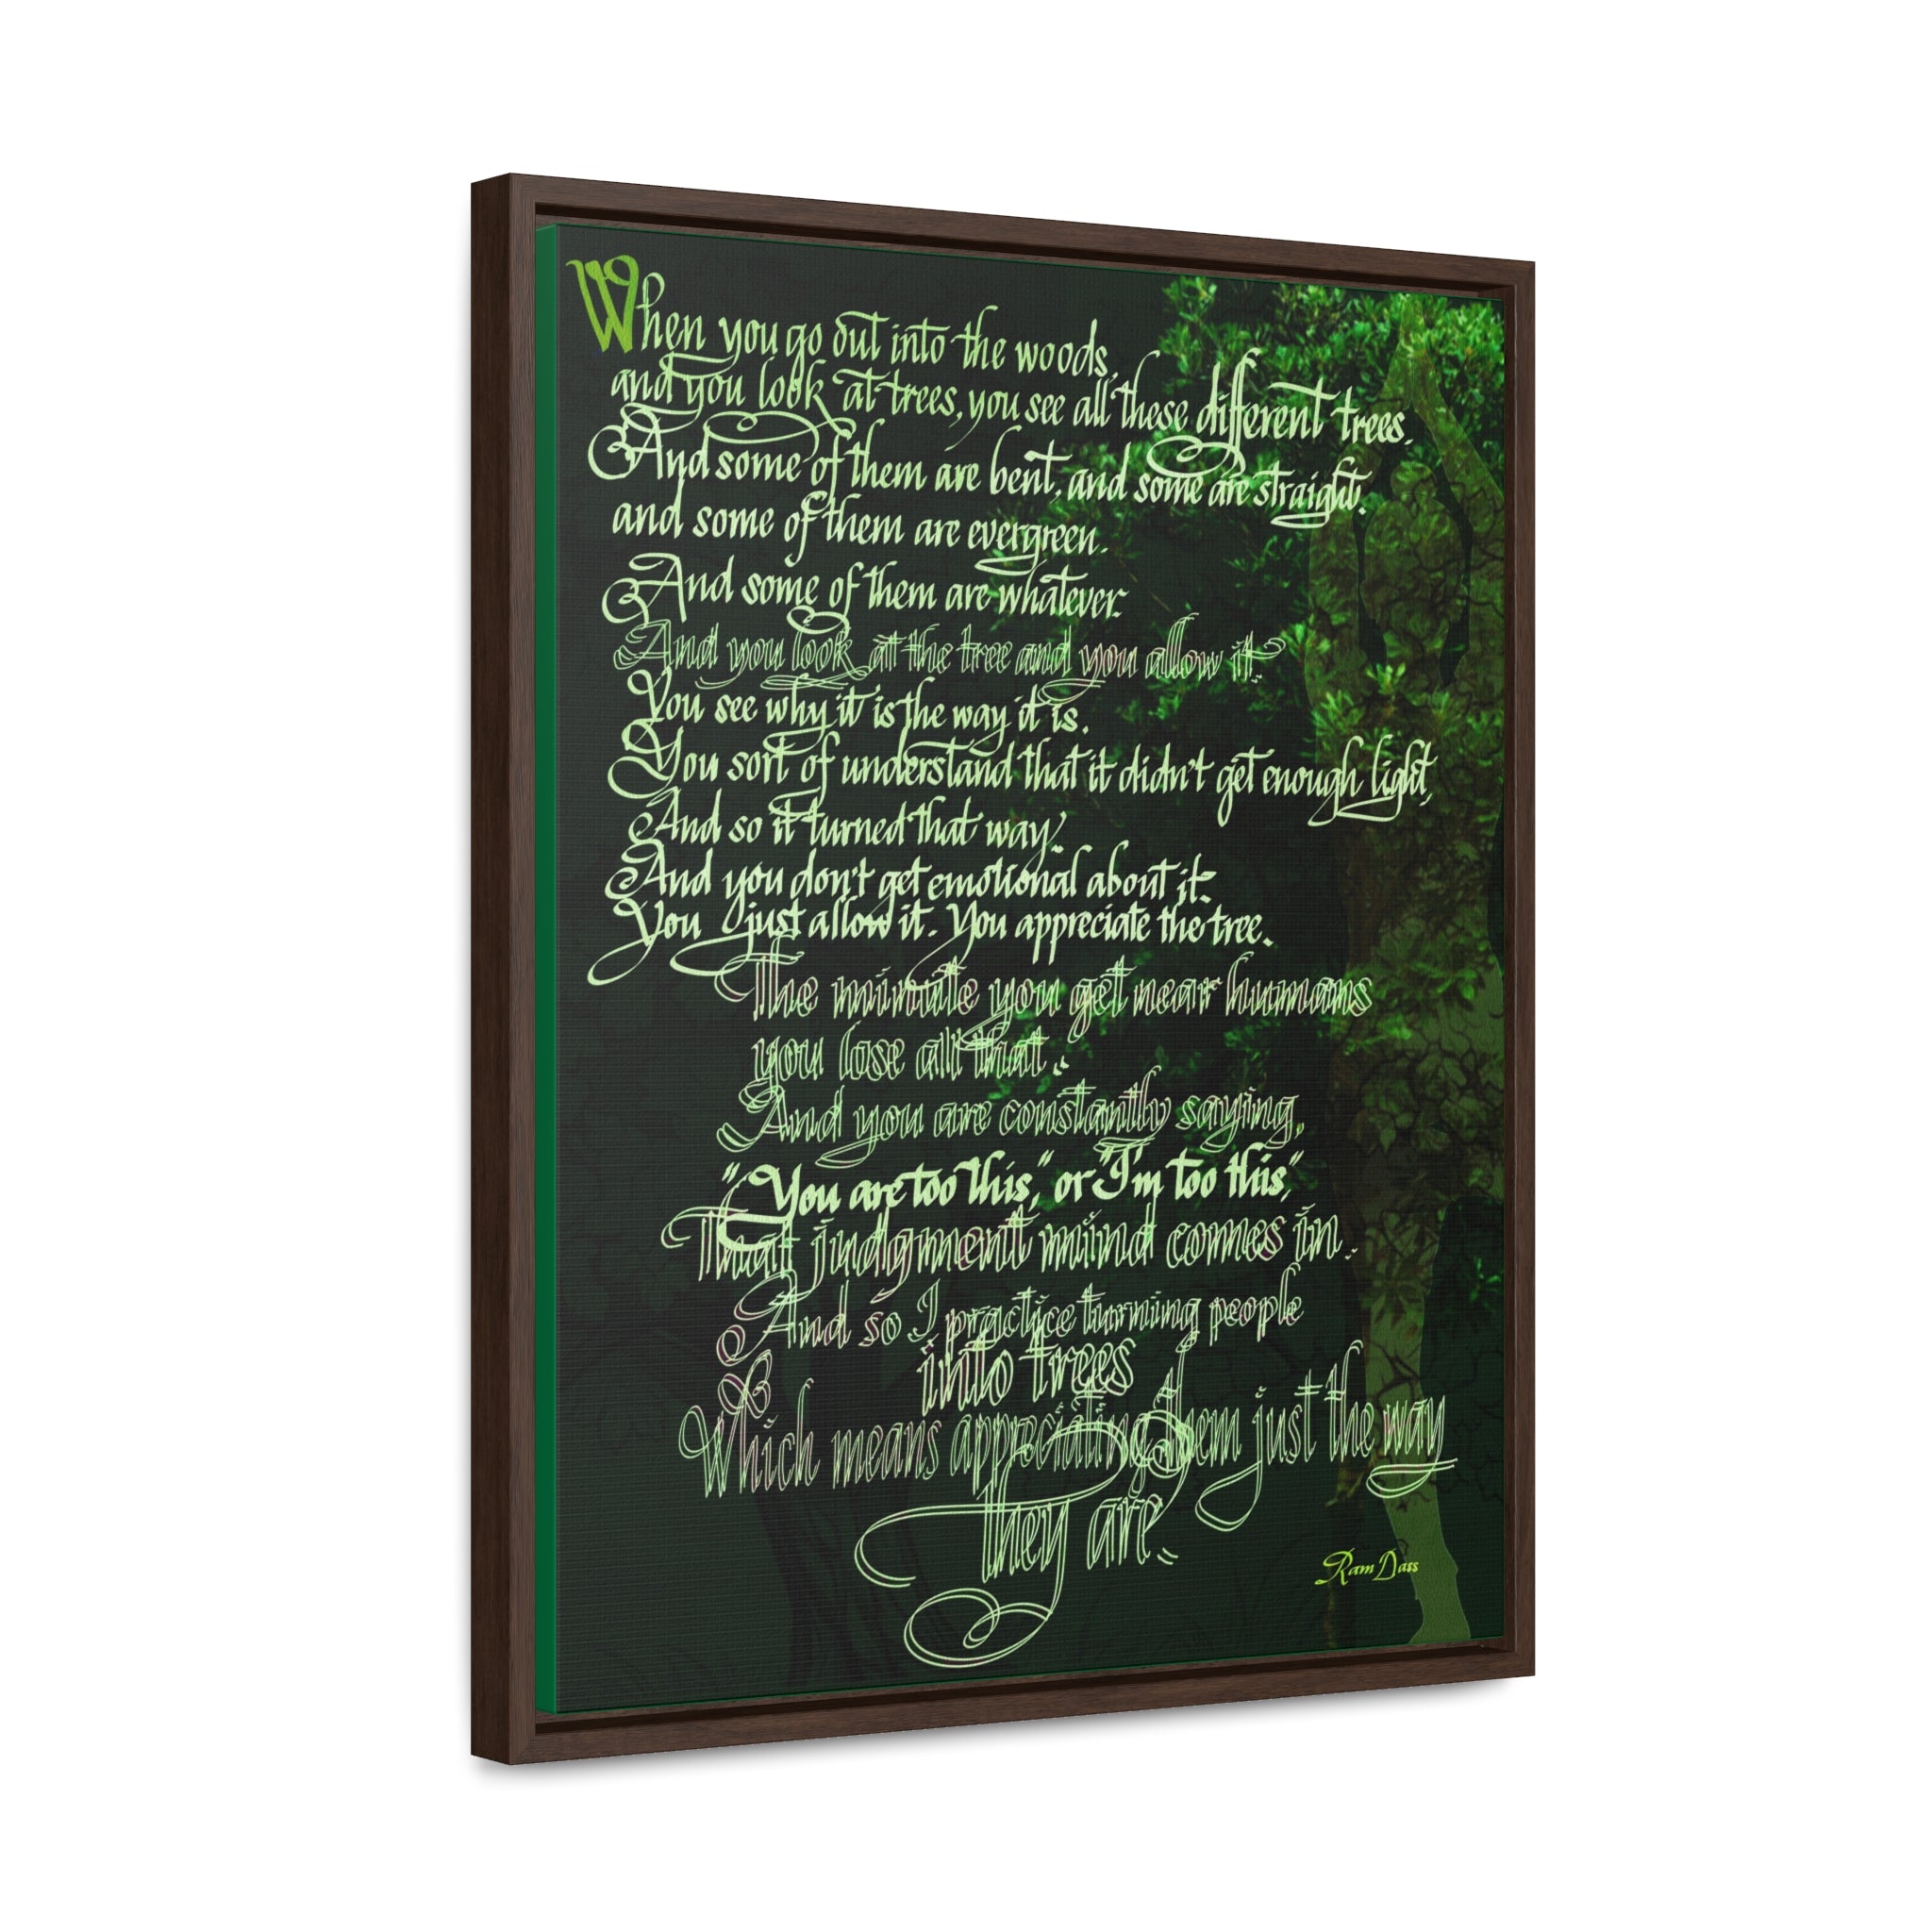 When you go out into the woods,
and you look at trees, you see all these different trees.
And some of them are bent, and some are straight,
and some of them are evergreen.
And some of them are whatever.
And you look at the tree and you allow it.
You see why it is the way it is.
You sort of understand that it didn't get enough light,
And so it turned that way.
And you don't get emotional about it.
You just allow it. You appreciate the tree.
The minute you get near humans
you lose all that.
And you are constantly saying,
"You are too this," or "I'm too this,"
That judgment mind comes in.
And so I practice turning people
into trees
Which means appreciating them just the way
they are.
Ram Dass